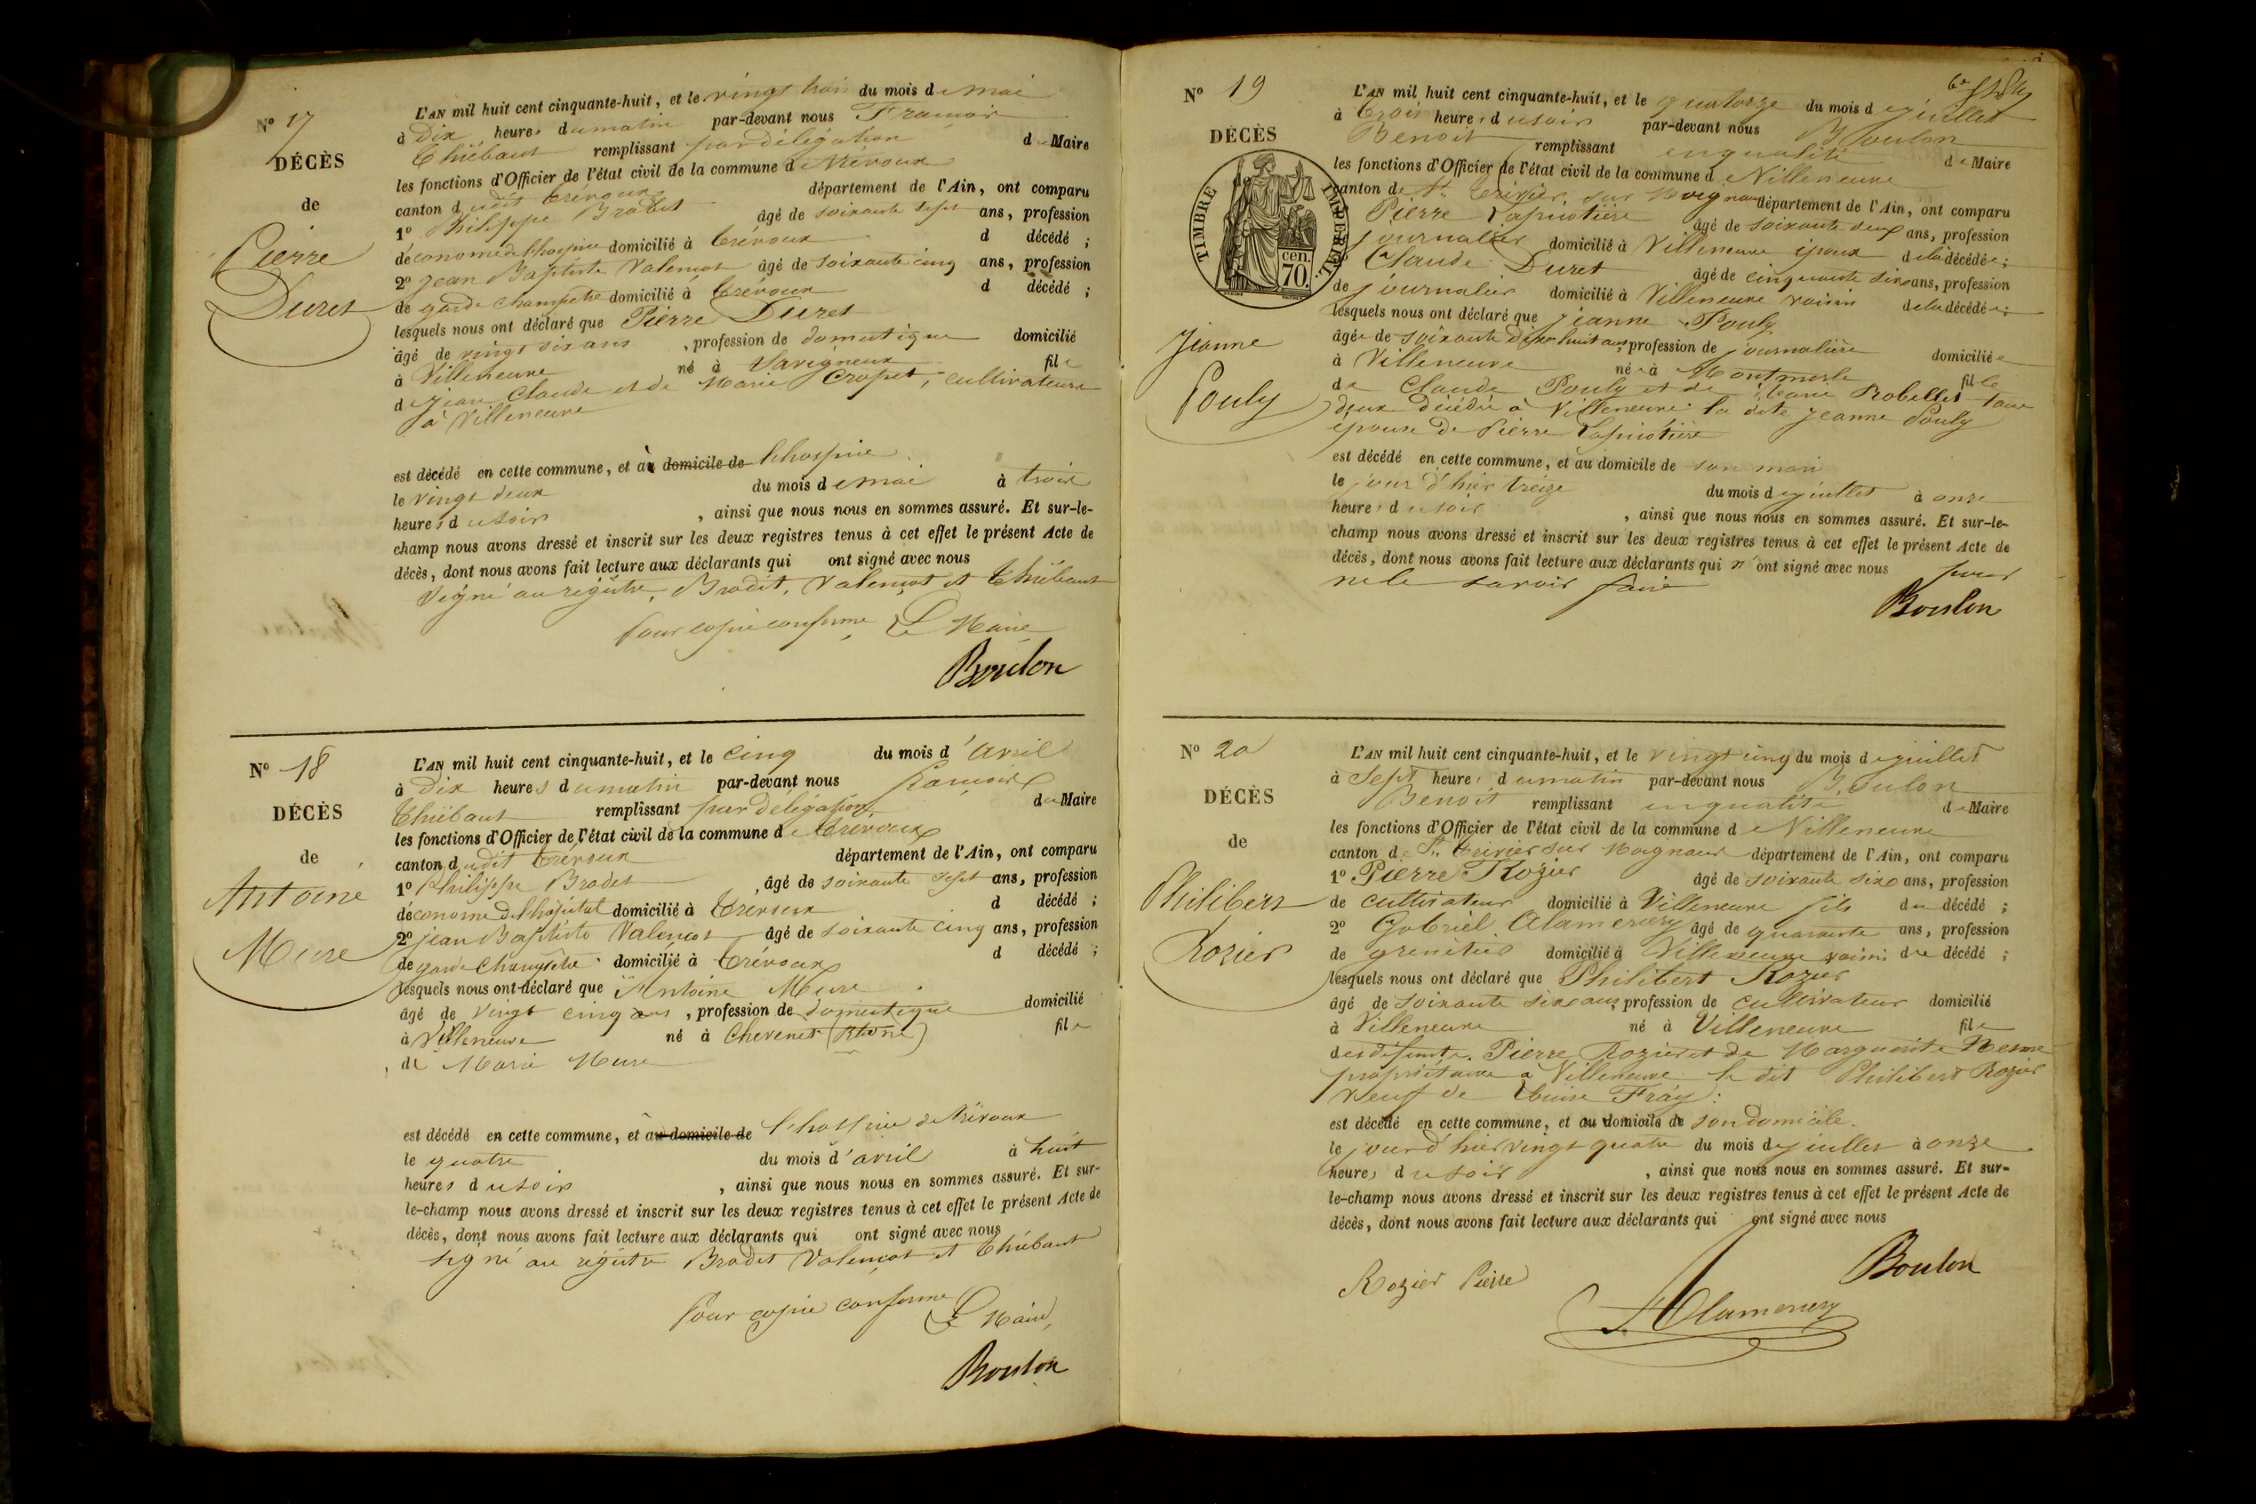 Nº 17
DÉCÈS
de
Pierre
Duret
L'AN mil huit cent cinquante-huit, et le vingt trois du mois de mai
à Dix heures du matin par-devant nous François
Thiébaut remplissant par délégation de Maire
les fonctions d'Officier de l'état civil de la commune de Trévoux
canton dudit Trévoux département de l'Ain, ont comparu
1º Philippe Brodet âgé de soixante sept ans, profession
d'économe de l'hospice domicilié à Trévoux d décédé ;
2º Jean Baptiste Valençot âgé de soixante cinq ans, profession
de garde champetre domicilié à Trévoux d décédé ;
lesquels nous ont déclaré que Pierre Duret
âgé de vingt six ans , profession de domestique domicilié
à Villeneuve né à Savigneux fils
de Jean Claude et de Marie Cropet, cultivateurs
à Villeneuve
est décédé en cette commune, et à domicile de l'hospice
le vingt deux du mois de mai à trois
heures du soir , ainsi que nous nous en sommes assuré. Et sur-le-
champ nous avons dressé et inscrit sur les deux registres tenus à cet effet le présent Acte de
décès, dont nous avons fait lecture aux déclarants qui ont signé avec nous
Signé au régistre, Brodet, Valençot et Thiébaut
Pour copie conforme Le Maire
Boulon
Nº 18
DÉCÈS
de
Antoine
Mure
L'AN mil huit cent cinquante-huit, et le cinq du mois d'avril
à Dix heures du matin par-devant nous François
Thiébaut remplissant par délégation de Maire
les fonctions d'Officier de l'état civil de la commune de Trévoux
canton dudit Trévoux département de l'Ain, ont comparu
1º Philippe Brodet , âgé de soixante sept ans, profession
d'économe de l'hôpital domicilié à Trévoux d décédé ;
2º Jean Baptiste Valençot âgé de soixante cinq ans, profession
de garde champetre domicilié à Trévoux d décédé ;
lesquels nous ont déclaré que Antoine Mure
âgé de vingt cinq ans , profession de domestique domicilié
à Villeneuve né à Chevenet (Rhône) fils
de Marie Mure
est décédé en cette commune, et au domicile de l'hospice de Trévoux
le quatre du mois d'avril à huit
heures du soir , ainsi que nous nous en sommes assuré. Et sur-
le-champ nous avons dressé et inscrit sur les deux registres tenus à cet effet le présent Acte de
décès, dont nous avons fait lecture aux déclarants qui ont signé avec nous
signé au régistre Brodet Valençot et Thiébaut
Pour copie conforme Le Maire,
Boulon
Nº 19
DÉCÈS
TIMBRE IMPÉRIAL
70. cen.
Jeanne
Pouly
L'AN mil huit cent cinquante-huit, et le quatorze du mois de juillet
à Trois heures du soir par-devant nous Boulon
Benoit remplissant en qualité de Maire
les fonctions d'Officier de l'état civil de la commune de Villeneuve
canton de St Trivier sur Moignans département de l'Ain, ont comparu
Pierre Lapriotière âgé de soixante deux ans, profession
journalier domicilié à Villeneuve époux de la décédée ;
Claude Duret âgé de cinquante six ans, profession
de journalier domicilié à Villeneuve voisin de la décédée ;
lesquels nous ont déclaré que Jeanne Pouly
âgée de soixante dix huit ans, profession de journalière domiciliée
à Villeneuve née à Montmerle fille
de Claude Pouly et de Marie Robellet tous
deux décédés à Villeneuve la dite Jeanne Pouly
épouse de Pierre Lapriotière
est décédé en cette commune, et au domicile de son mari
le jour d'hier treize du mois de juillet à onze
heures du soir , ainsi que nous nous en sommes assuré. Et sur-le-
champ nous avons dressé et inscrit sur les deux registres tenus à cet effet le présent Acte de
décès, dont nous avons fait lecture aux déclarants qui n'ont signé avec nous pour
ne le savoir faire
Boulon
Nº 20
DÉCÈS
de
Philibert
Rozier
L'AN mil huit cent cinquante-huit, et le vingt cinq du mois de juillet
à Sept heures du matin par-devant nous Boulon
Benoit remplissant en qualité de Maire
les fonctions d'Officier de l'état civil de la commune de Villeneuve
canton de St Trivier sur Moignans département de l'Ain, ont comparu
1º Pierre Rozier âgé de soixante six ans, profession
de cultivateur domicilié à Villeneuve fils du décédé ;
2º Gabriel Alamercery âgé de quarante ans, profession
de grenetier domicilié à Villeneuve voisin du décédé ;
lesquels nous ont déclaré que Philibert Rozier
âgé de soixante six ans, profession de cultivateur domicilié
à Villeneuve né à Villeneuve fils
des défunts Pierre Rozier et de Marguerite Nesme
propriétaires à Villeneuve le dit Philibert Rozier
veuf de Louise Fray :
est décédé en cette commune, et au domicile de son domicile
le jour d'hier vingt quatre du mois de juillet à onze
heures du soir , ainsi que nous nous en sommes assuré. Et sur-
le-champ nous avons dressé et inscrit sur les deux registres tenus à cet effet le présent Acte de
décès, dont nous avons fait lecture aux déclarants qui ont signé avec nous
Boulon
Rozier Pierre
Alamercery